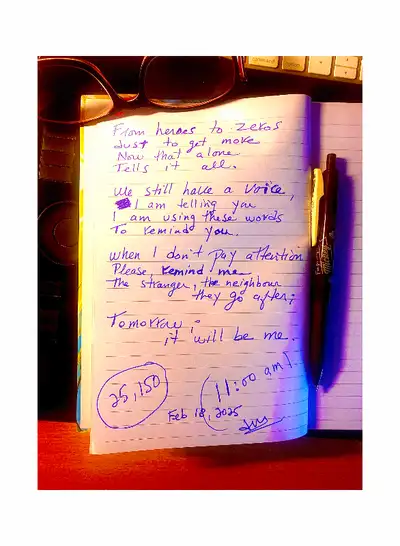 From heroes to zeros
Just to get more
Now that alone
Tells it all.
We still have a voice,
I am telling you
I am using these words
To remind you.
When I don't pay attention
Please, remind me
The stranger, the neighbour
they go after;
Tomorrow;
it will be me.
25,150
11:00 am!
Feb 18, 2025